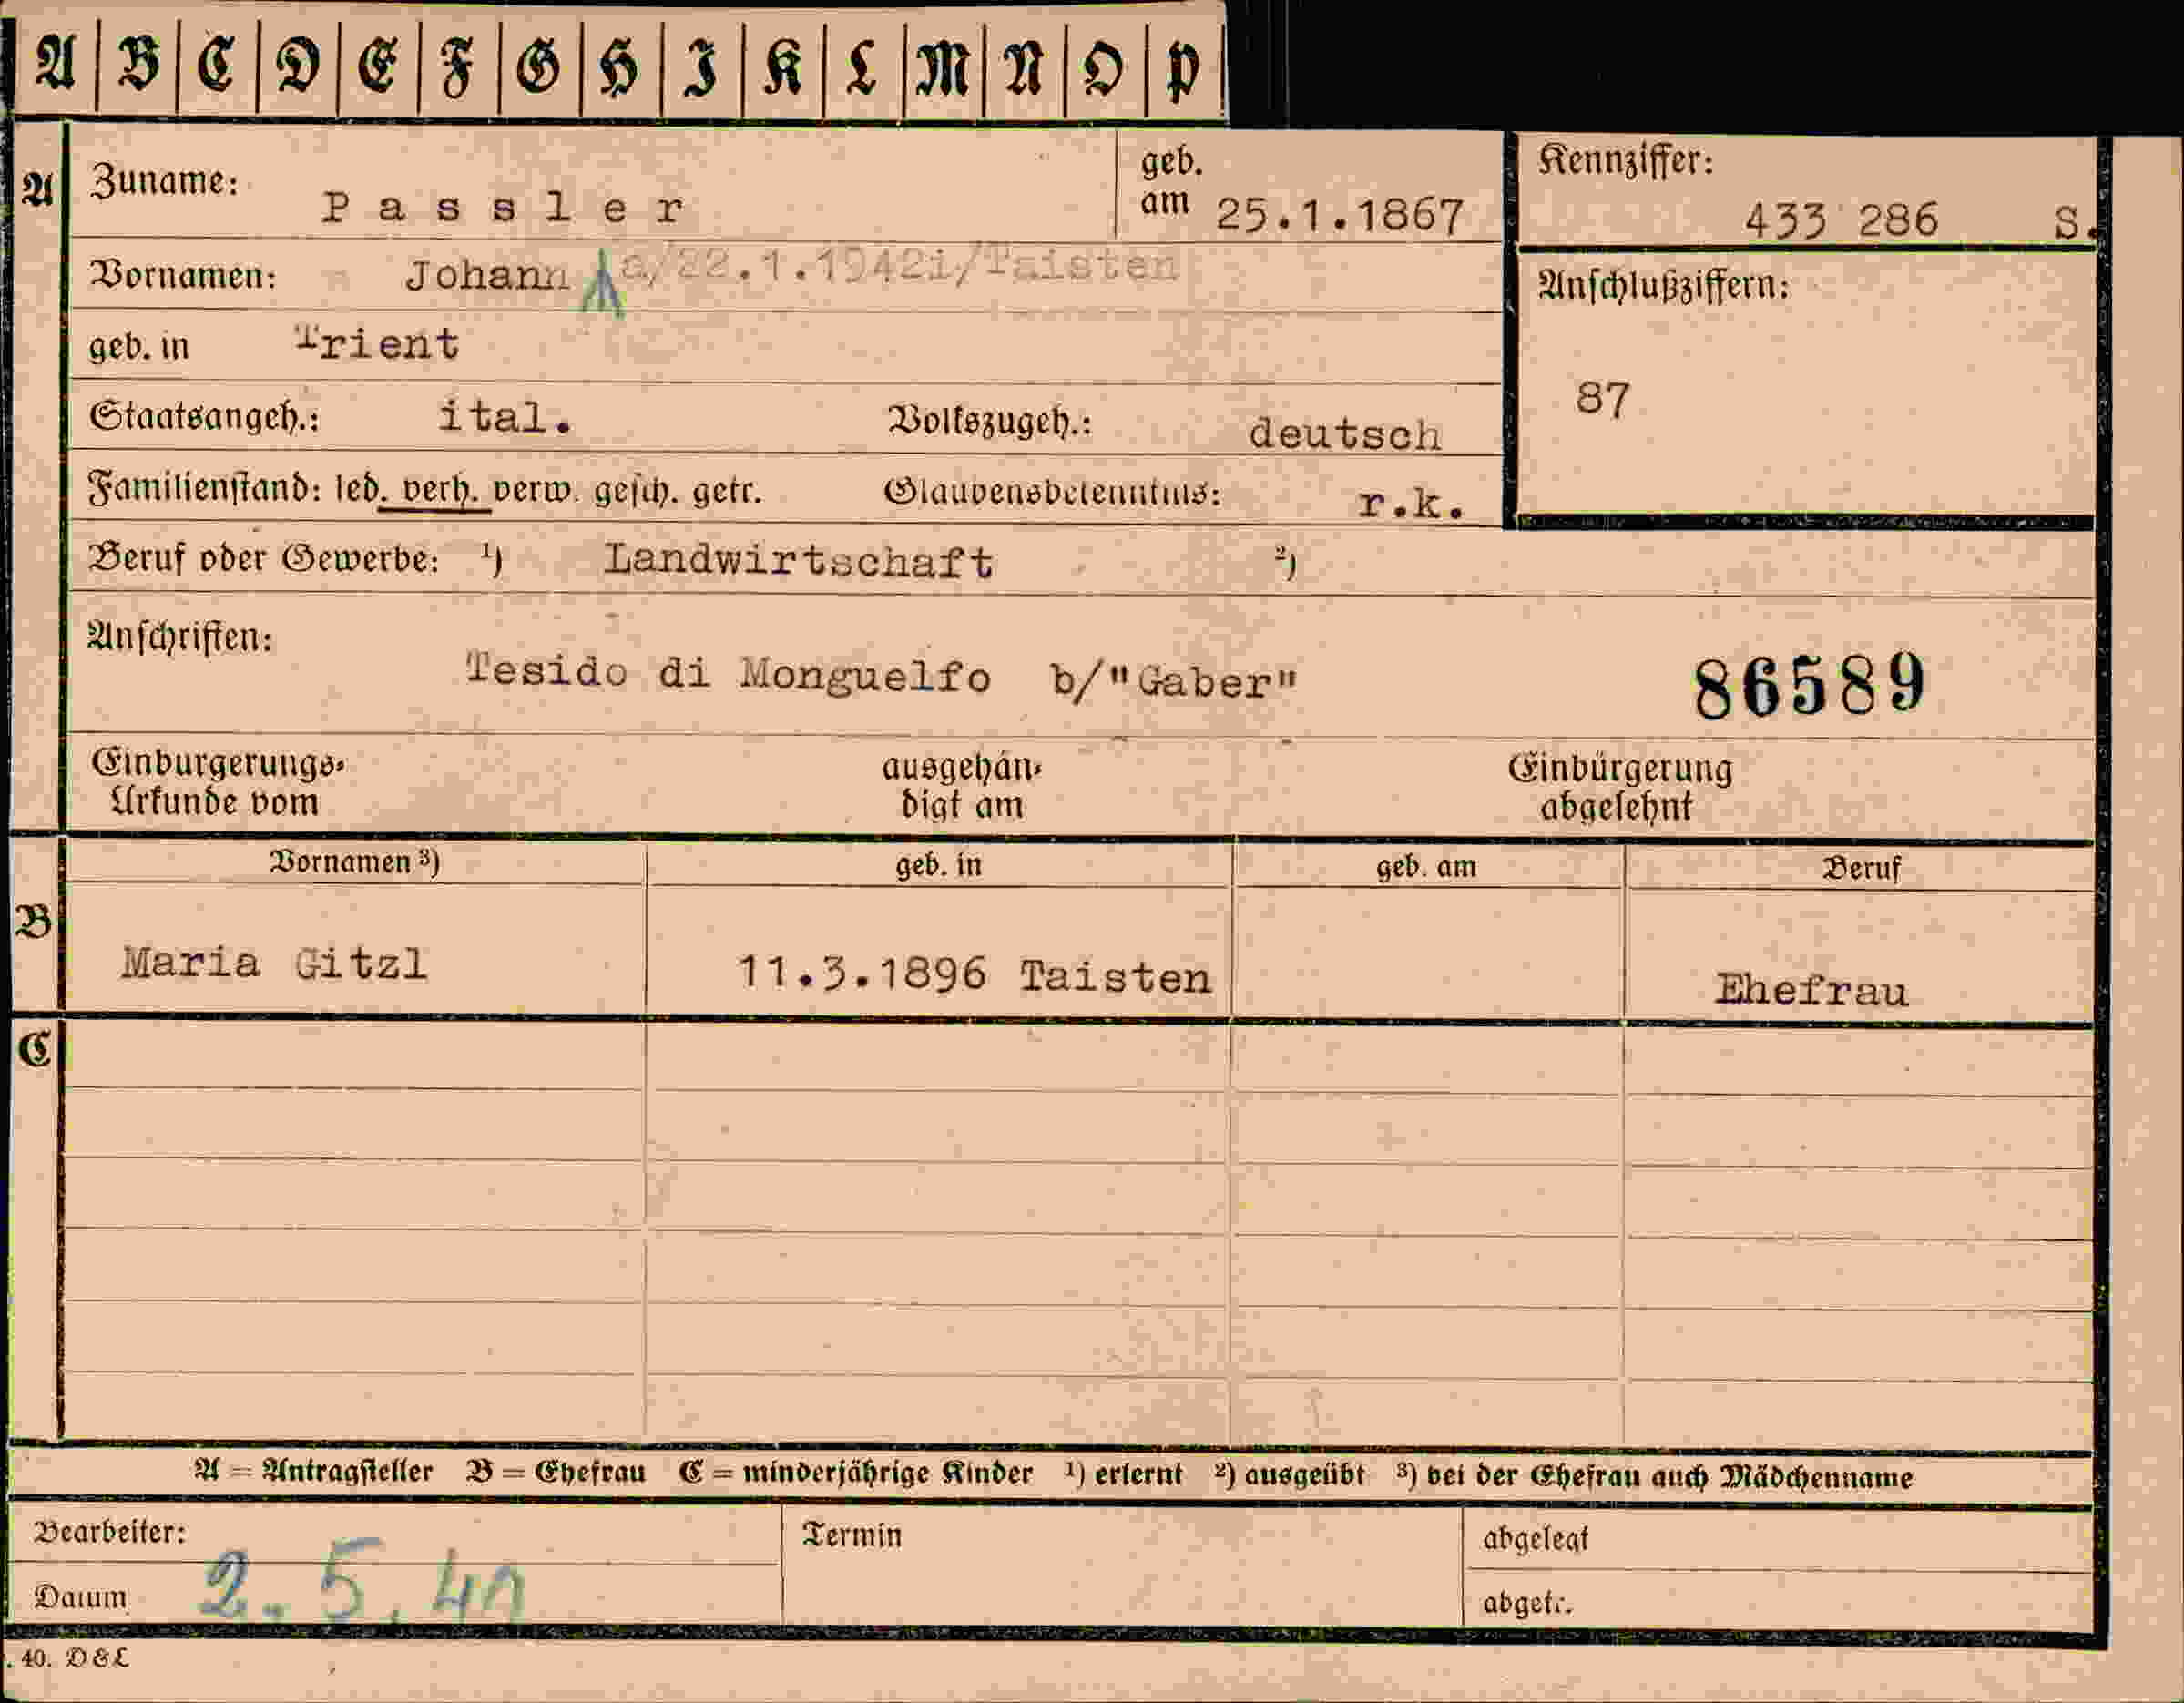 A B C D E F G H I K L M N O P
A Zuname: Passler geb. am 25.1.1867 Kennziffer: 433 286 S.
Vornamen: Johann 22.1.1942i/Taisten Anschlußziffern:
geb. in Trient
87
Staatsangeh.: ital. Volkszugeh.: deutsch
Familienstand: led. verh. verw. gesch. getr. Glaubensbekenntnis: r.k.
Beruf oder Gewerbe: ¹) Landwirtschaft ²)
Anschriften: Tesido di Monguelfo b/"Gaber" 86589
Einbürgerungs- ausgehän- Einbürgerung
Urkunde vom digt am abgelehnt
Vornamen ³) geb. in geb. am Beruf
B Maria Gitzl 11.3.1896 Taisten Ehefrau
C
A = Antragsteller B = Ehefrau C = minderjährige Kinder ¹) erlernt ²) ausgeübt ³) bei der Ehefrau auch Mädchenname
Bearbeiter: Termin abgelegt
Datum 2.5.41 abgetr.
. 40. D & L